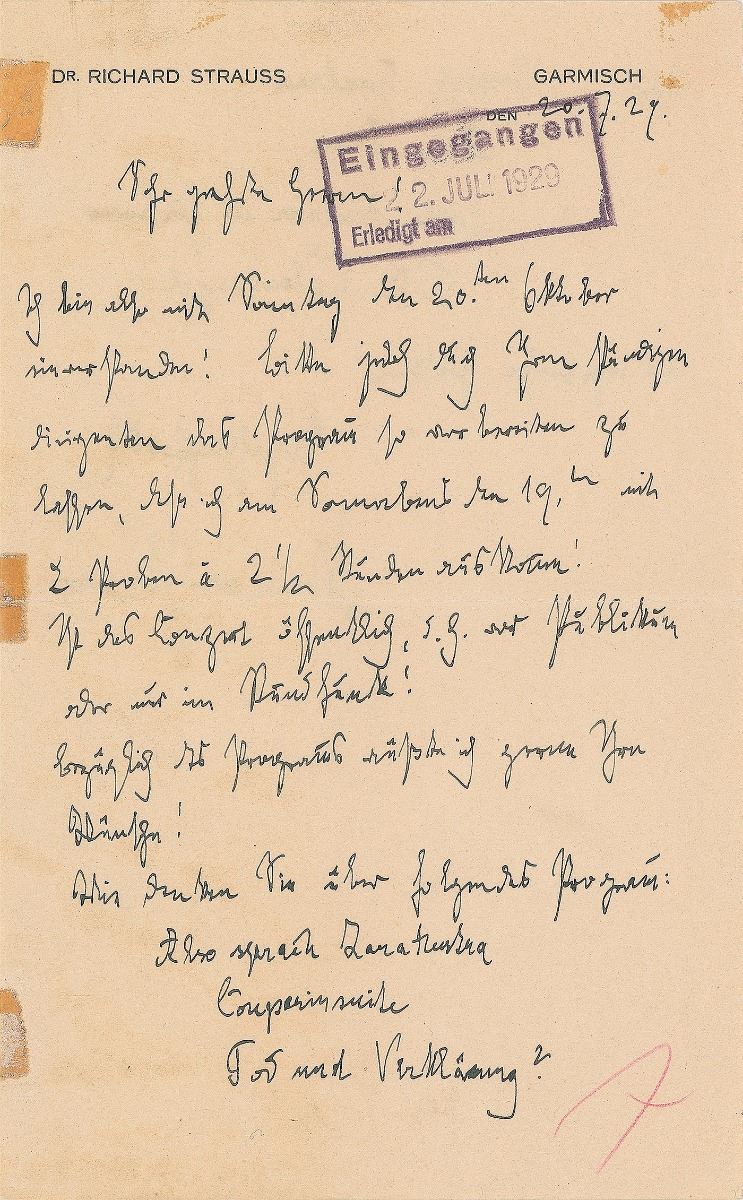 DR. RICHARD STRAUSS GARMISCH
DEN 20. 7. 29.
Eingegangen
22. JULI 1929
Erledigt am
Sehr geehrte Herren!
Ich bin also mit Sonntag den 20.ten Oktober
einverstanden! Bitte jedoch durch Ihren ständigen
Dirigenten das Program so vorbereiten zu
lassen, daß ich am Sonnabend den 19.ten mit
2 Proben à 2 1/2 Stunden auskomme!
Ist das Conzert öffentlich, d. h. vor Publikum
oder nur im Rundfunk!
bezüglich des Programs wüßte ich gerne Ihre
Wünsche!
Wie denken Sie über folgendes Program:
Also sprach Zarathustra
Couperinsuite
Tod und Verklärung?